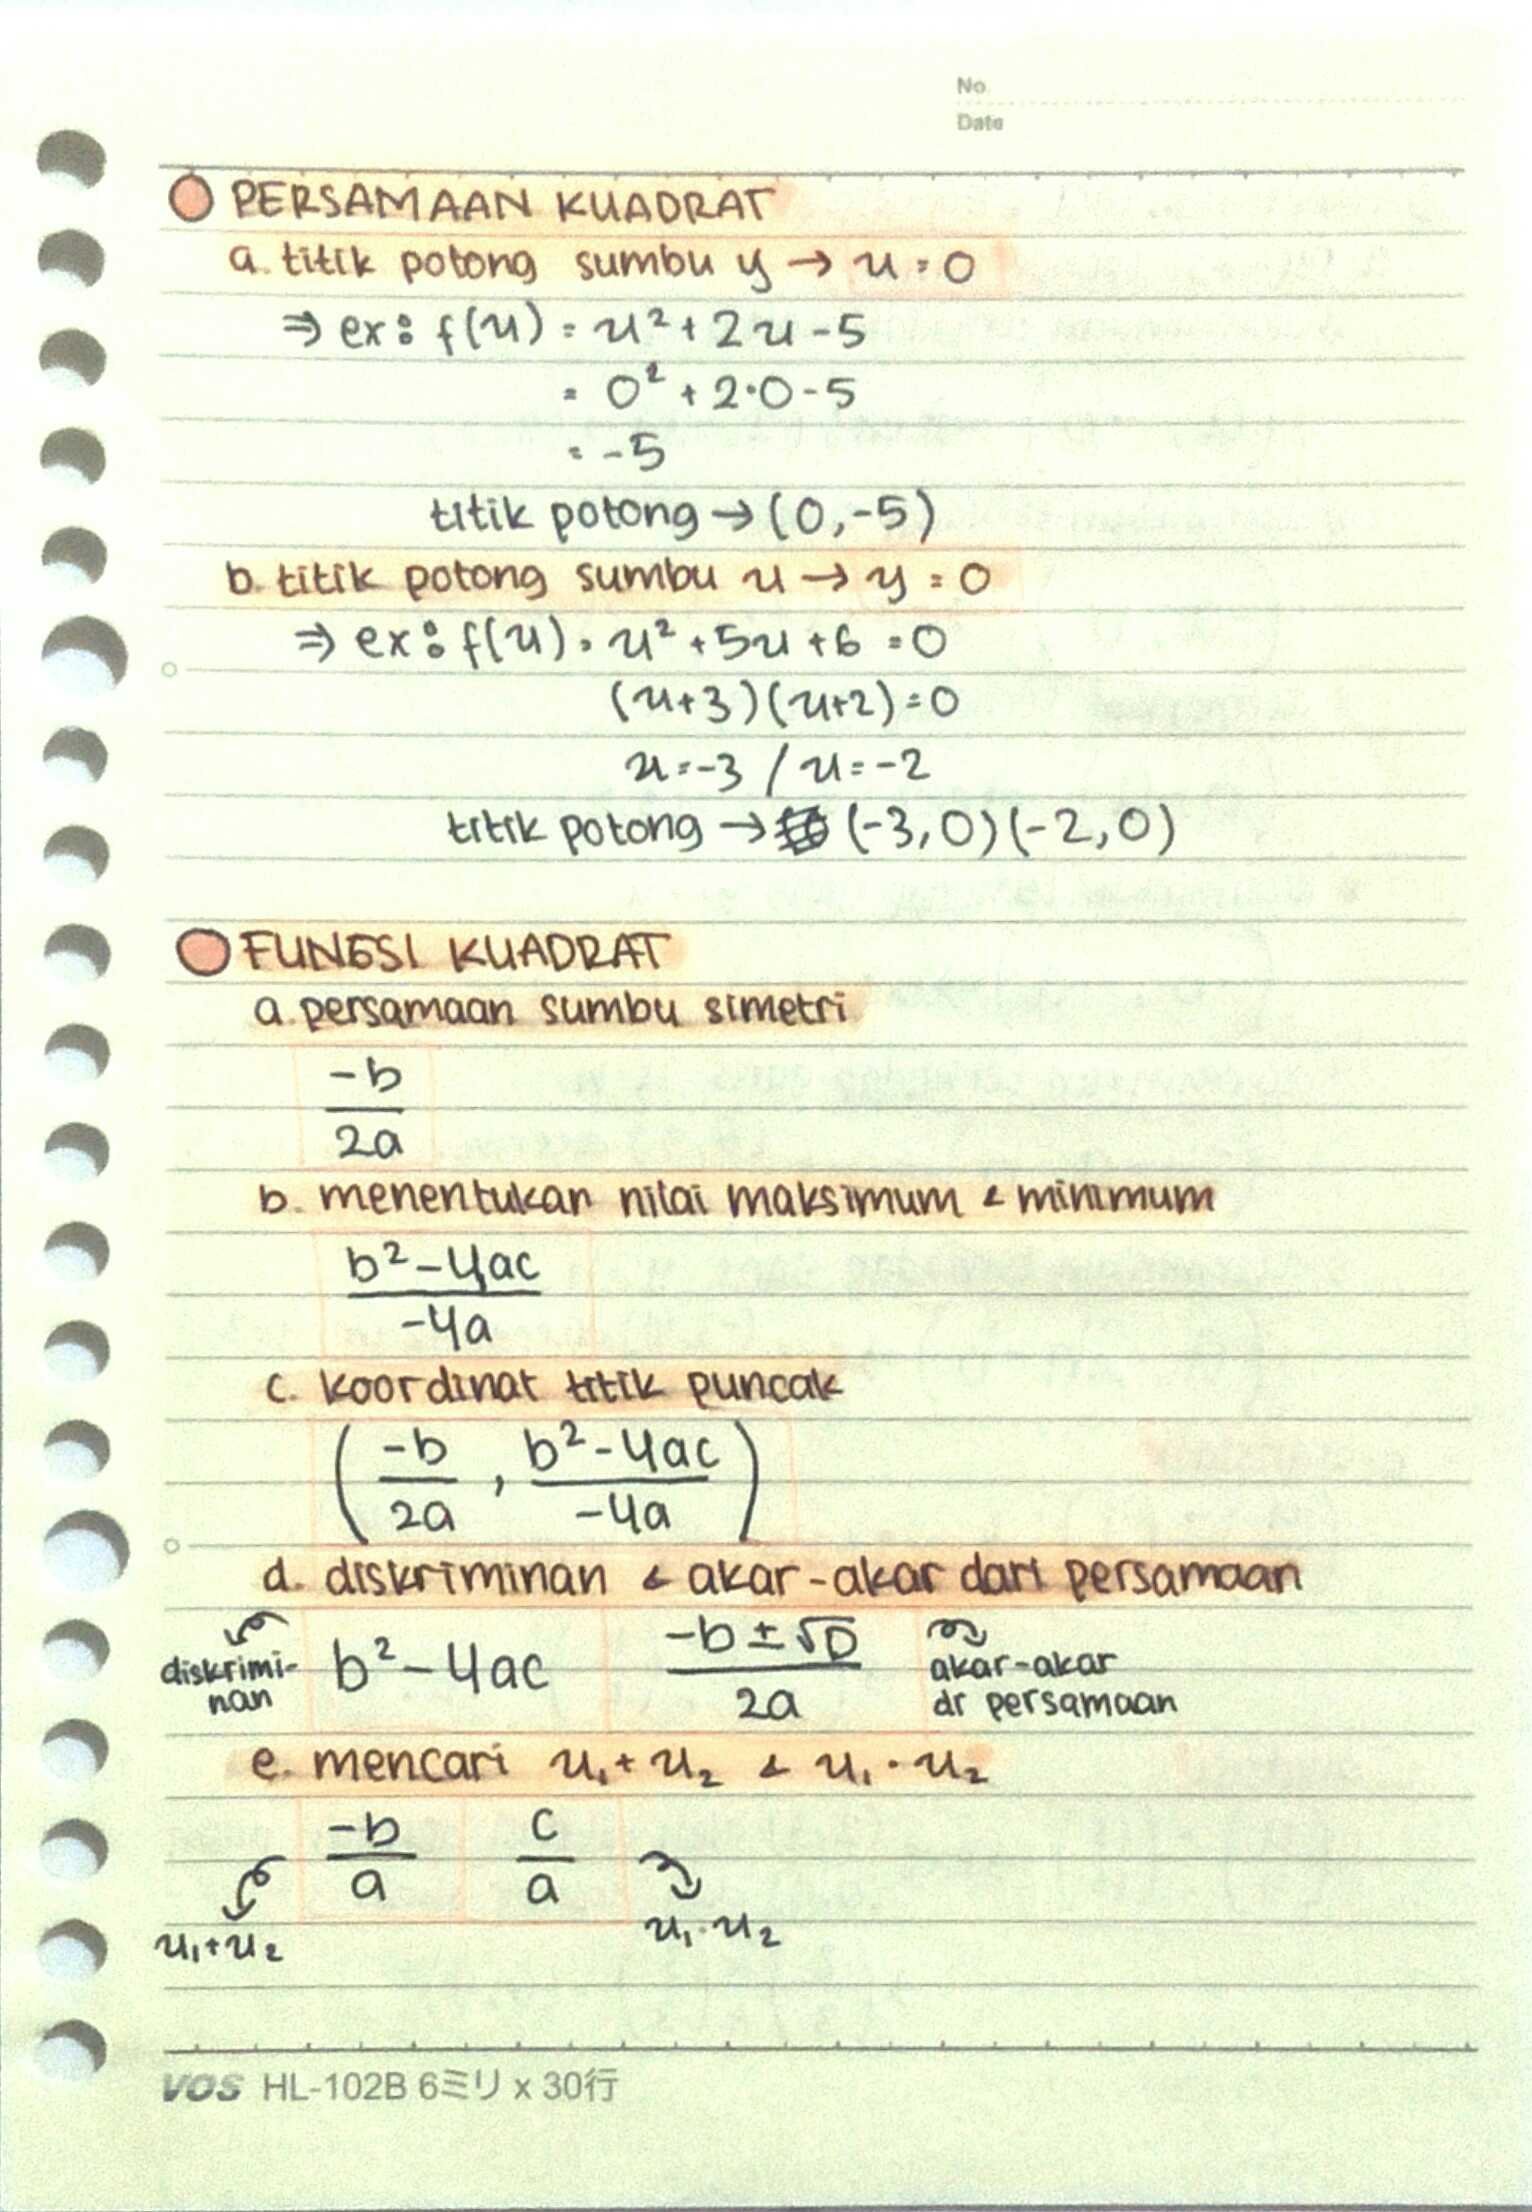 No
Date
PERSAMAAN KUADRAT
a. titik potong sumbu y → x = 0
⇒ ex: f(x) = x² + 2x - 5
= 0² + 2·0 - 5
= -5
titik potong → (0,-5)
b. titik potong sumbu x → y = 0
⇒ ex: f(x) = x² + 5x + 6 = 0
(x+3)(x+2) = 0
x = -3 / x = -2
titik potong → (-3,0)(-2,0)
FUNGSI KUADRAT
a. persamaan sumbu simetri
-b
2a
b. menentukan nilai maksimum & minimum
b² - 4ac
-4a
c. koordinat titik puncak
(-b/2a , b²-4ac/-4a)
d. diskriminan & akar-akar dari persamaan
diskrimi-
nan
b² - 4ac
-b ± √D
2a
akar-akar
dr persamaan
e. mencari x₁ + x₂ & x₁ · x₂
-b
a
c
a
x₁+x₂
x₁·x₂
VOS HL-102B 6ミリ x 30行